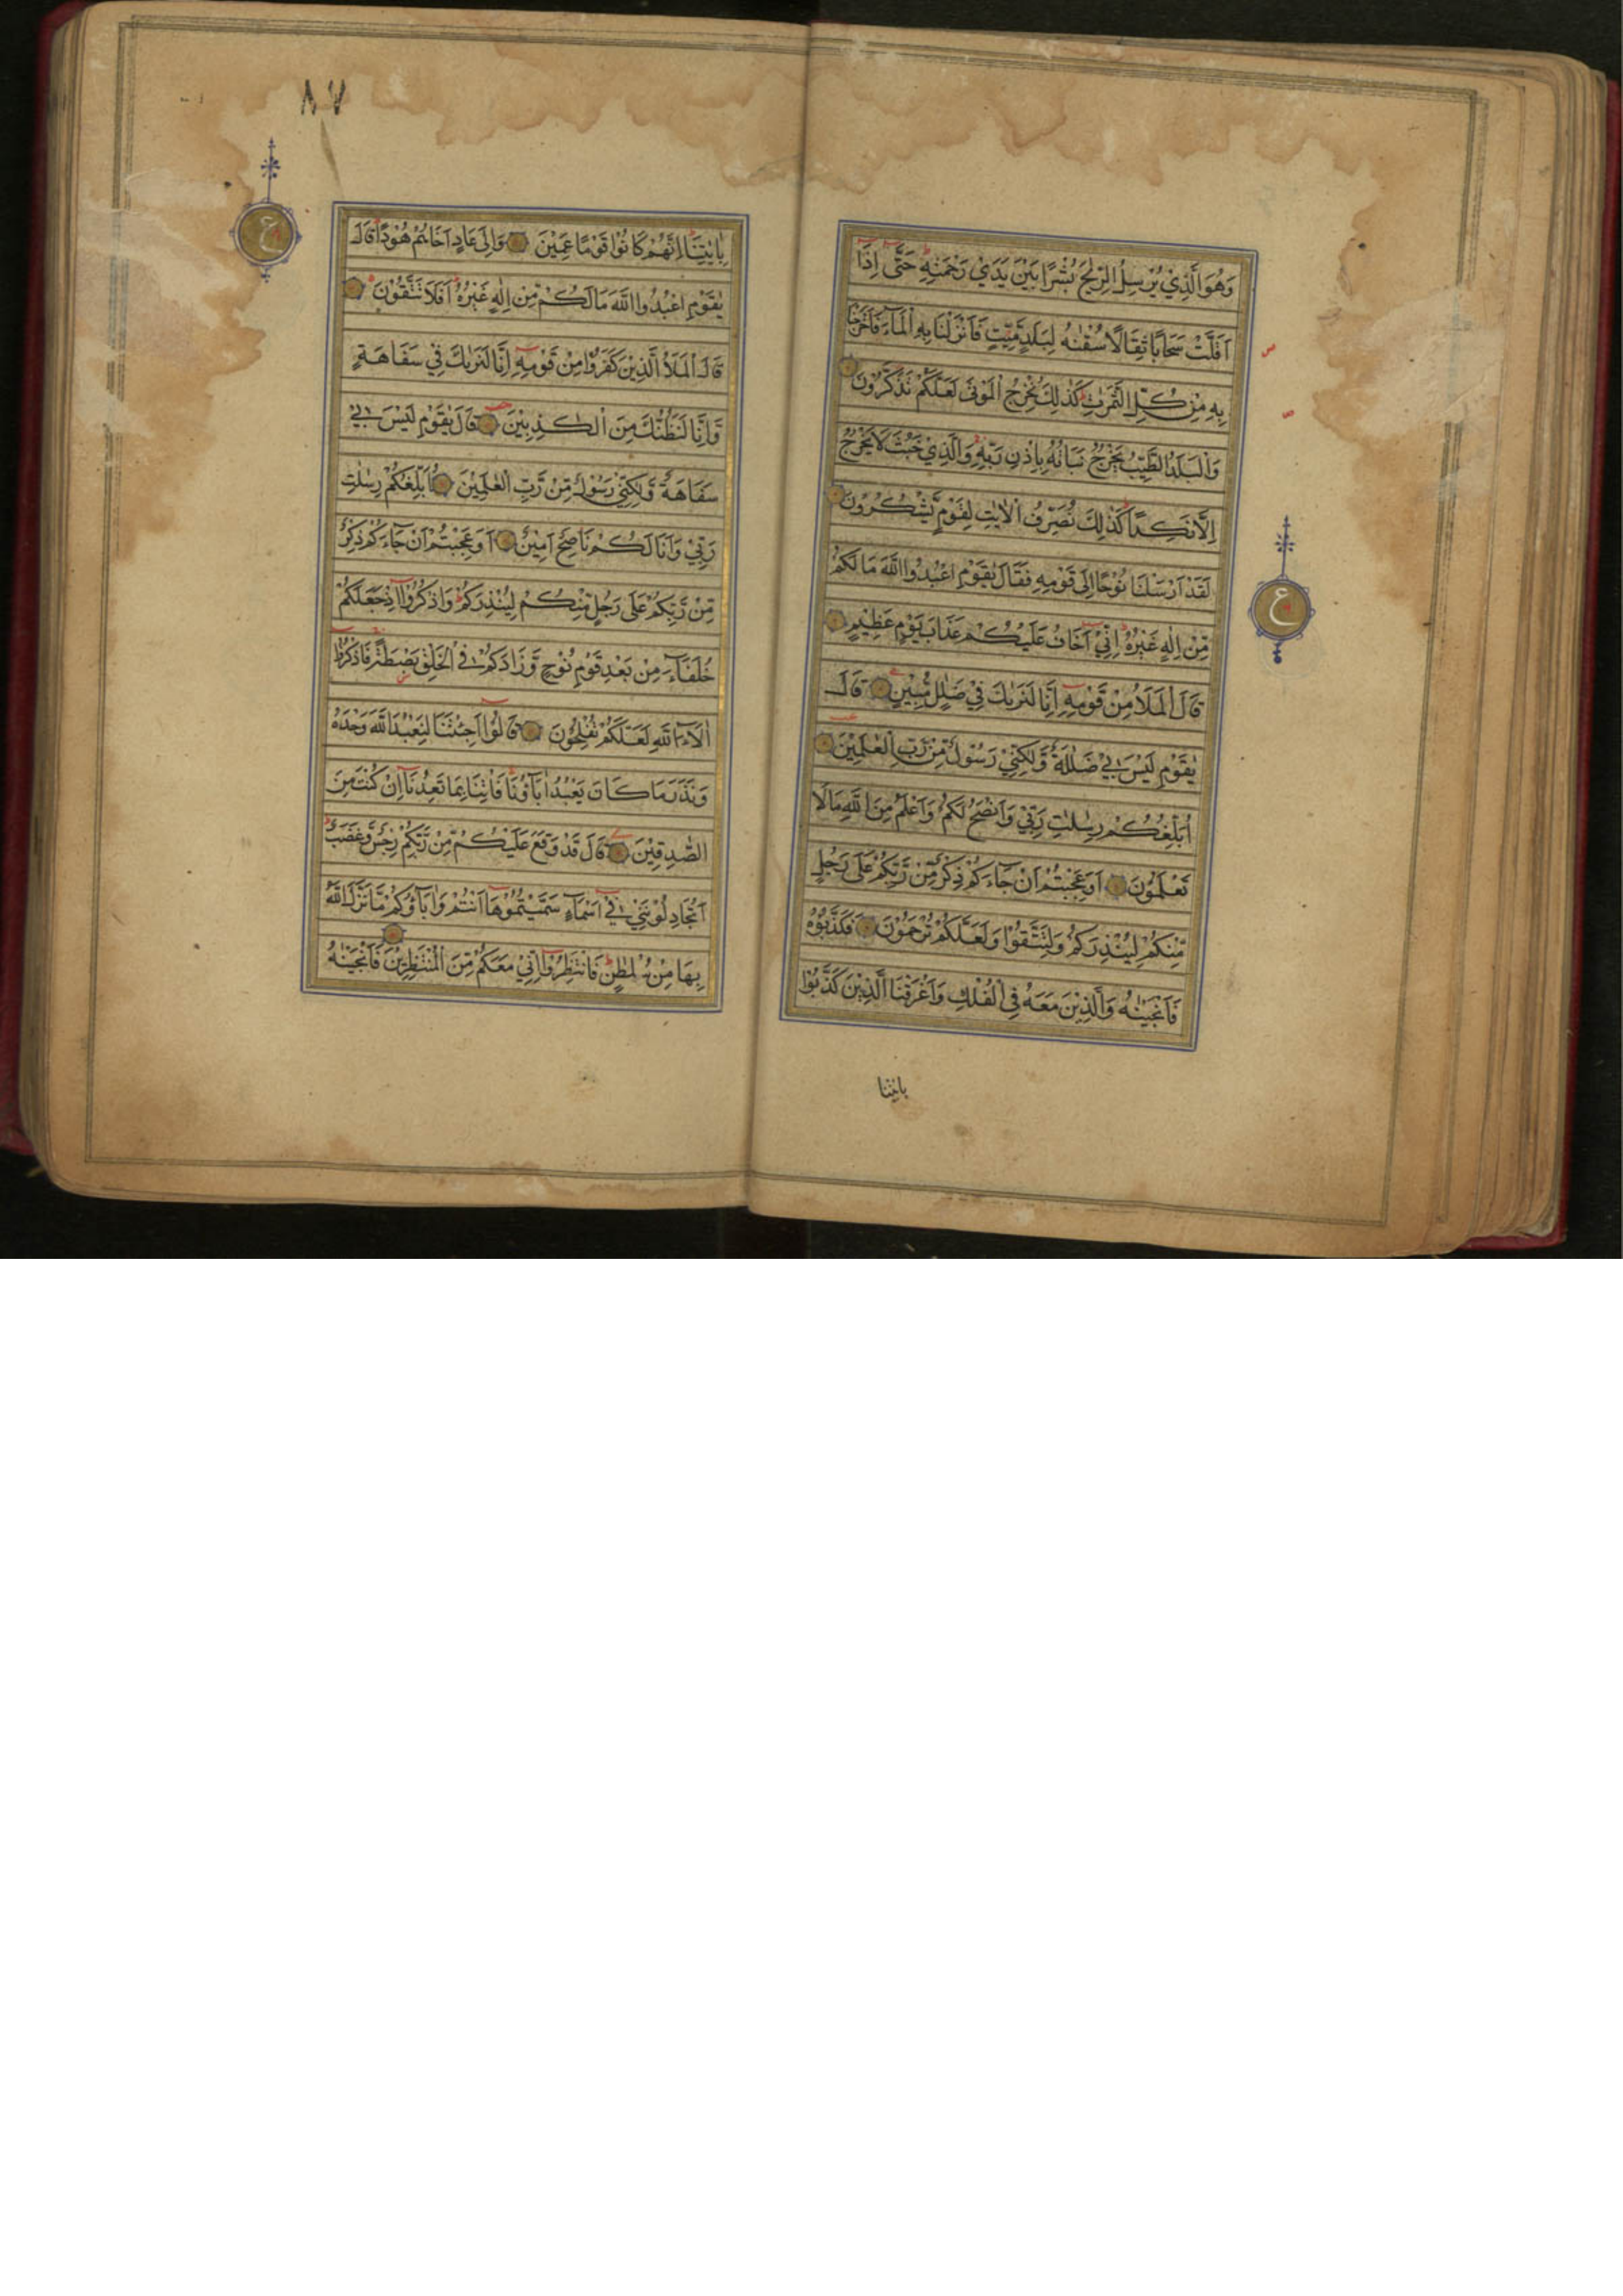 وَهُوَ الَّذِيْ يُرْسِلُ الرِّيٰحَ بُشْرًا بَيْنَ يَدَيْ رَحْمَتِهٖ حَتّٰى اِذَا
اَقَلَّتْ سَحَابًا ثِقَالًا سُقْنٰهُ لِبَلَدٍ مَّيِّتٍ فَاَنْزَلْنَا بِهِ الْمَآءَ فَاَخْرَجْنَا
بِهٖ مِنْ كُلِّ الثَّمَرٰتِ كَذٰلِكَ نُخْرِجُ الْمَوْتٰى لَعَلَّكُمْ تَذَكَّرُوْنَ
وَالْبَلَدُ الطَّيِّبُ يَخْرُجُ نَبَاتُهٗ بِاِذْنِ رَبِّهٖ وَالَّذِيْ خَبُثَ لَا يَخْرُجُ
اِلَّا نَكِدًا كَذٰلِكَ نُصَرِّفُ الْاٰيٰتِ لِقَوْمٍ يَّشْكُرُوْنَ
لَقَدْ اَرْسَلْنَا نُوْحًا اِلٰى قَوْمِهٖ فَقَالَ يٰقَوْمِ اعْبُدُوا اللّٰهَ مَا لَكُمْ
مِّنْ اِلٰهٍ غَيْرُهٗ اِنِّيْ اَخَافُ عَلَيْكُمْ عَذَابَ يَوْمٍ عَظِيْمٍ
قَالَ الْمَلَاُ مِنْ قَوْمِهٖ اِنَّا لَنَرٰىكَ فِيْ ضَلٰلٍ مُّبِيْنٍ قَالَ
يٰقَوْمِ لَيْسَ بِيْ ضَلٰلَةٌ وَّلٰكِنِّيْ رَسُوْلٌ مِّنْ رَّبِّ الْعٰلَمِيْنَ
اُبَلِّغُكُمْ رِسٰلٰتِ رَبِّيْ وَاَنْصَحُ لَكُمْ وَاَعْلَمُ مِنَ اللّٰهِ مَا لَا
تَعْلَمُوْنَ اَوَعَجِبْتُمْ اَنْ جَآءَكُمْ ذِكْرٌ مِّنْ رَّبِّكُمْ عَلٰى رَجُلٍ
مِّنْكُمْ لِيُنْذِرَكُمْ وَلِتَتَّقُوْا وَلَعَلَّكُمْ تُرْحَمُوْنَ فَكَذَّبُوْهُ
فَاَنْجَيْنٰهُ وَالَّذِيْنَ مَعَهٗ فِي الْفُلْكِ وَاَغْرَقْنَا الَّذِيْنَ كَذَّبُوْا
باٰيٰتنا
ع
٨٧
بِاٰيٰتِنَا اِنَّهُمْ كَانُوْا قَوْمًا عَمِيْنَ وَاِلٰى عَادٍ اَخَاهُمْ هُوْدًا قَالَ
يٰقَوْمِ اعْبُدُوا اللّٰهَ مَا لَكُمْ مِّنْ اِلٰهٍ غَيْرُهٗ اَفَلَا تَتَّقُوْنَ
قَالَ الْمَلَاُ الَّذِيْنَ كَفَرُوْا مِنْ قَوْمِهٖ اِنَّا لَنَرٰىكَ فِيْ سَفَاهَةٍ
وَّاِنَّا لَنَظُنُّكَ مِنَ الْكٰذِبِيْنَ قَالَ يٰقَوْمِ لَيْسَ بِيْ
سَفَاهَةٌ وَّلٰكِنِّيْ رَسُوْلٌ مِّنْ رَّبِّ الْعٰلَمِيْنَ اُبَلِّغُكُمْ رِسٰلٰتِ
رَبِّيْ وَاَنَا لَكُمْ نَاصِحٌ اَمِيْنٌ اَوَعَجِبْتُمْ اَنْ جَآءَكُمْ ذِكْرٌ
مِّنْ رَّبِّكُمْ عَلٰى رَجُلٍ مِّنْكُمْ لِيُنْذِرَكُمْ وَاذْكُرُوْا اِذْ جَعَلَكُمْ
خُلَفَآءَ مِنْ بَعْدِ قَوْمِ نُوْحٍ وَّزَادَكُمْ فِي الْخَلْقِ بَصْۜطَةً فَاذْكُرُوْا
اٰلَآءَ اللّٰهِ لَعَلَّكُمْ تُفْلِحُوْنَ قَالُوْا اَجِئْتَنَا لِنَعْبُدَ اللّٰهَ وَحْدَهٗ
وَنَذَرَ مَا كَانَ يَعْبُدُ اٰبَآؤُنَا فَاْتِنَا بِمَا تَعِدُنَا اِنْ كُنْتَ مِنَ
الصّٰدِقِيْنَ قَالَ قَدْ وَقَعَ عَلَيْكُمْ مِّنْ رَّبِّكُمْ رِجْسٌ وَّغَضَبٌ
اَتُجَادِلُوْنَنِيْ فِيْ اَسْمَآءٍ سَمَّيْتُمُوْهَا اَنْتُمْ وَاٰبَآؤُكُمْ مَّا نَزَّلَ اللّٰهُ
بِهَا مِنْ سُلْطٰنٍ فَانْتَظِرُوْا اِنِّيْ مَعَكُمْ مِّنَ الْمُنْتَظِرِيْنَ فَاَنْجَيْنٰهُ
ع